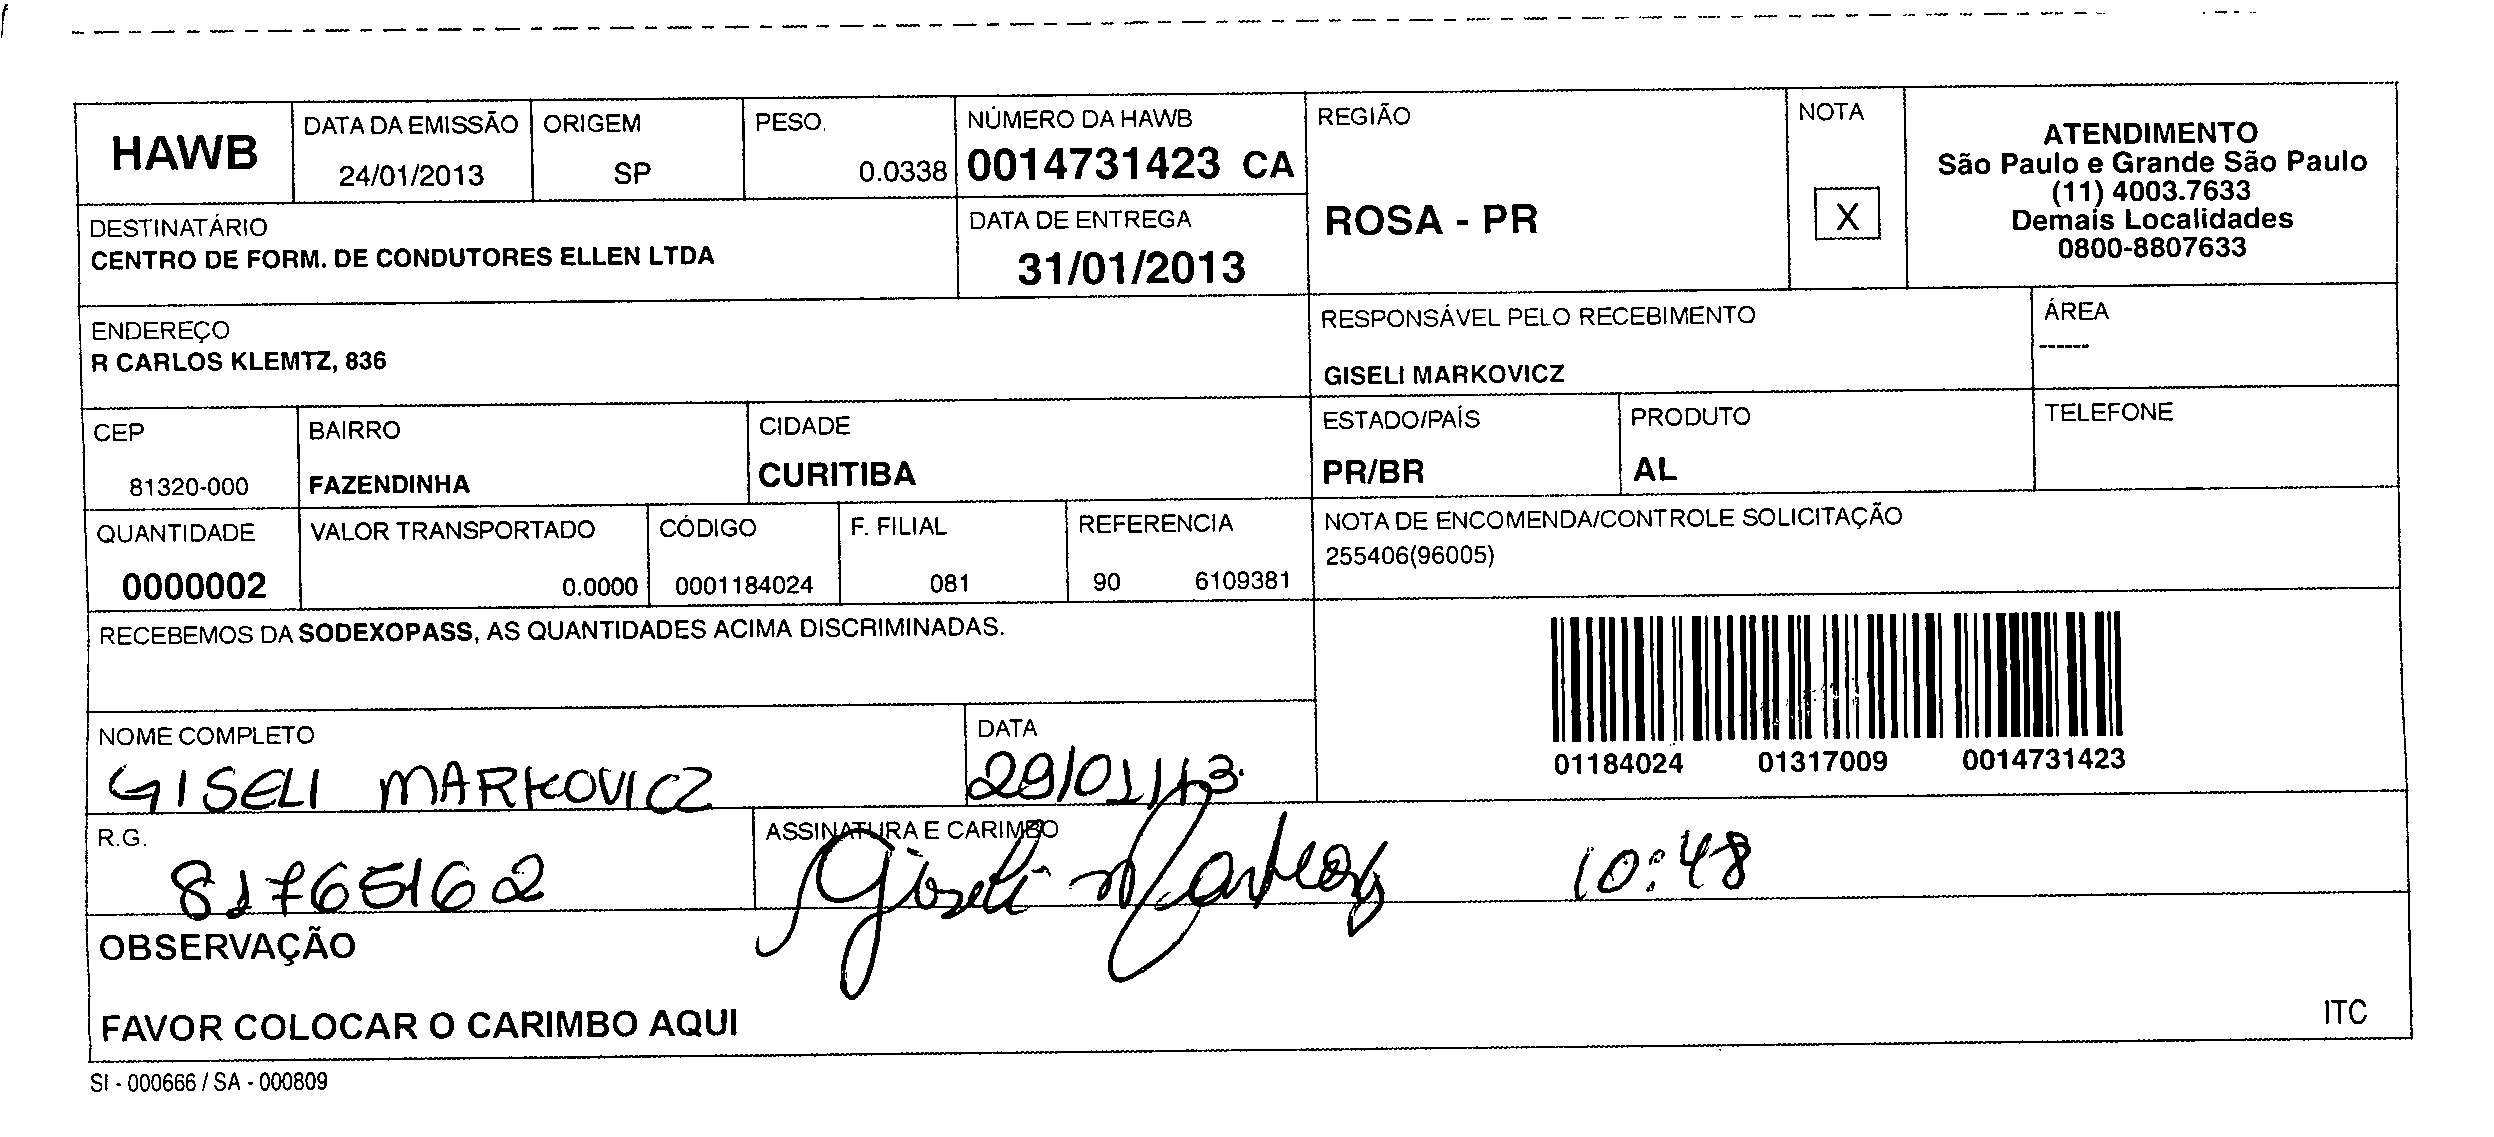 HAWB
DATA DA EMISSÃO
24/01/2013
ORIGEM
SP
PESO.
0.0338
NÚMERO DA HAWB
0014731423 CA
REGIÃO
ROSA - PR
NOTA
X
ATENDIMENTO
São Paulo e Grande São Paulo
(11) 4003.7633
Demais Localidades
0800-8807633
DESTINATÁRIO
CENTRO DE FORM. DE CONDUTORES ELLEN LTDA
DATA DE ENTREGA
31/01/2013
ENDEREÇO
R CARLOS KLEMTZ, 836
RESPONSÁVEL PELO RECEBIMENTO
GISELI MARKOVICZ
ÁREA
------
CEP
81320-000
BAIRRO
FAZENDINHA
CIDADE
CURITIBA
ESTADO/PAÍS
PR/BR
PRODUTO
AL
TELEFONE
QUANTIDADE
0000002
VALOR TRANSPORTADO
0.0000
CÓDIGO
0001184024
F. FILIAL
081
REFERENCIA
90 6109381
NOTA DE ENCOMENDA/CONTROLE SOLICITAÇÃO
255406(96005)
RECEBEMOS DA SODEXOPASS, AS QUANTIDADES ACIMA DISCRIMINADAS.
01184024 01317009 0014731423
NOME COMPLETO
GISELI MARKOVICZ
DATA
29/01/13
R.G.
81765162
ASSINATURA E CARIMBO
Giseli Markovicz
10:48
OBSERVAÇÃO
FAVOR COLOCAR O CARIMBO AQUI
ITC
SI - 000666 / SA - 000809